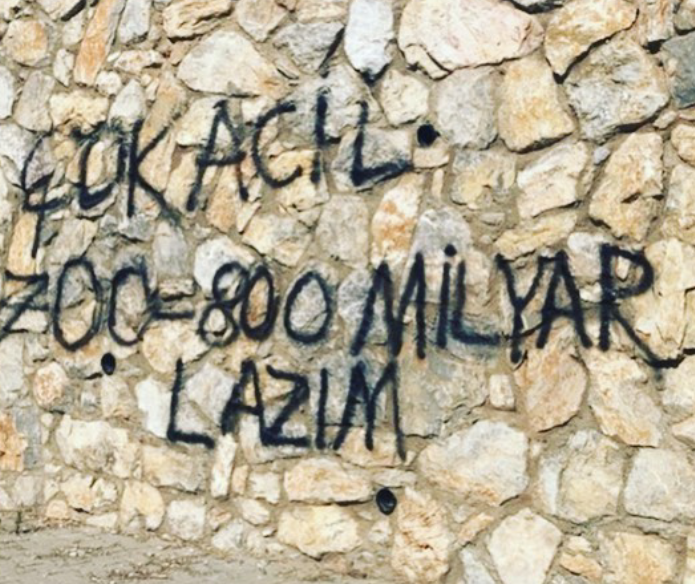 ÇOK ACİL
200-800 MİLYAR
LAZIM